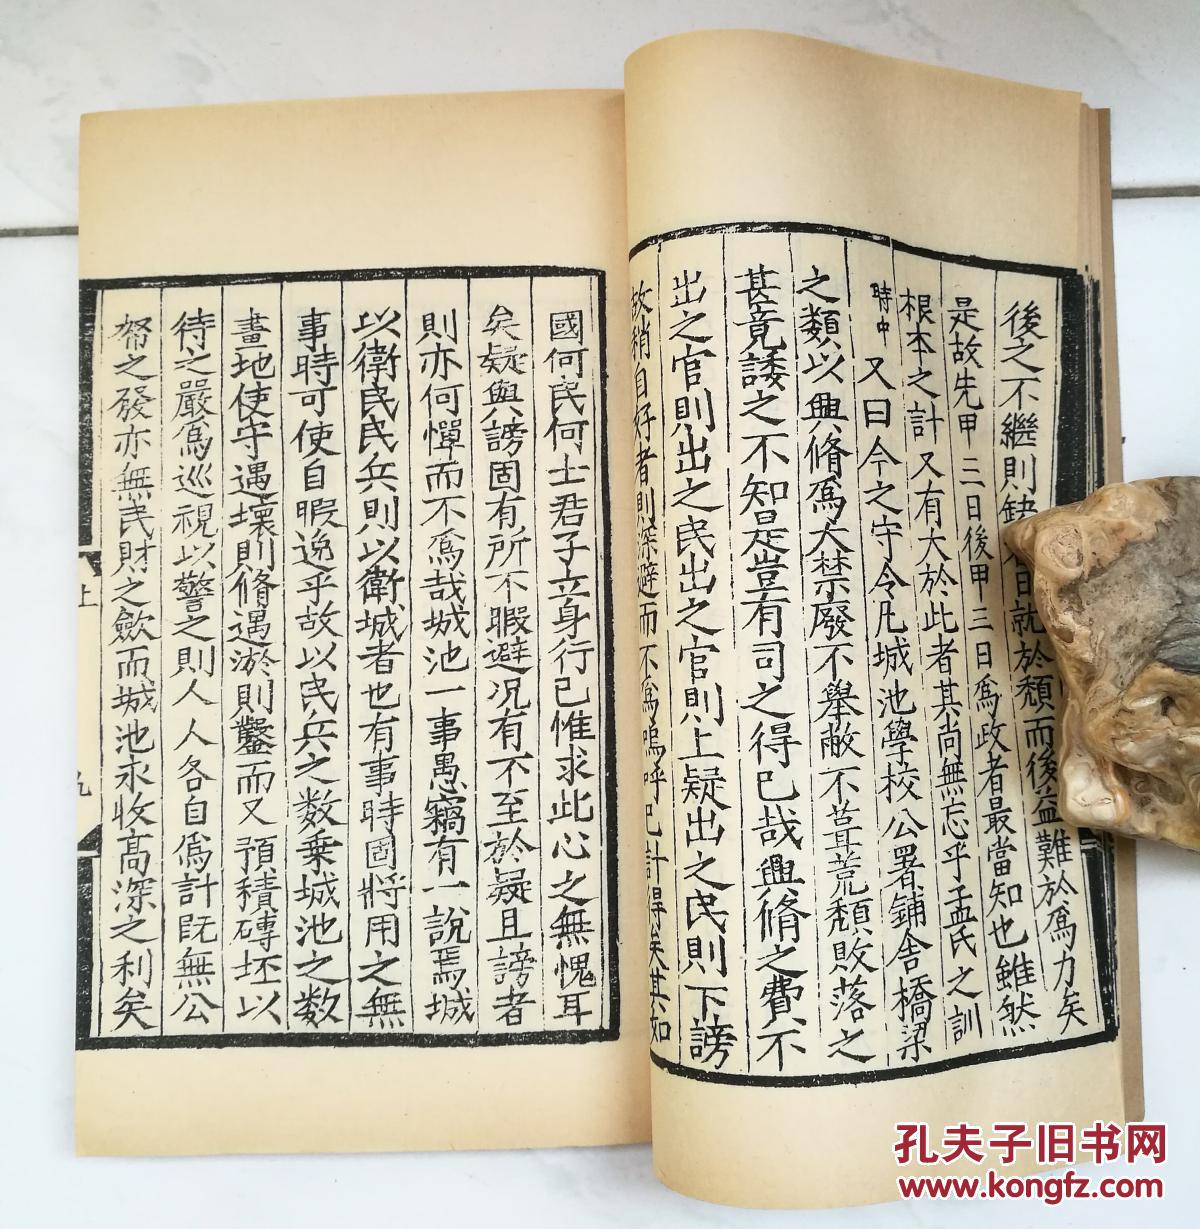 後之不繼則缺日就於頹而後益難於爲力矣
是故先甲三日後甲三日爲政者最當知也雖然
根本之計又有大於此者其尚無忘乎孟氏之訓
時中
又曰今之守令凡城池學校公署鋪舍橋梁
之類以興脩爲大禁廢不舉敝不葺荒頹敗落之
甚竟諉之不知是豈有司之得已哉興脩之費不
出之官則出之民出之官則上疑出之民則下謗
故稍自好者則深避而不爲嗚呼已計得矣其如
國何民何士君子立身行己惟求此心之無愧耳
矣疑與謗固有所不暇避况有不至於疑且謗者
則亦何憚而不爲哉城池一事愚竊有一說焉城
以衛民民兵則以衛城者也有事時固將用之無
事時可使自暇逸乎故以民兵之数乗城池之数
畫地使守遇壞則脩遇淤則鑿而又預積磚坯以
待之嚴爲巡視以警之則人人各自爲計既無公
帑之發亦無民財之歛而城池永收高深之利矣
上
九
孔夫子旧书网
www.kongfz.com